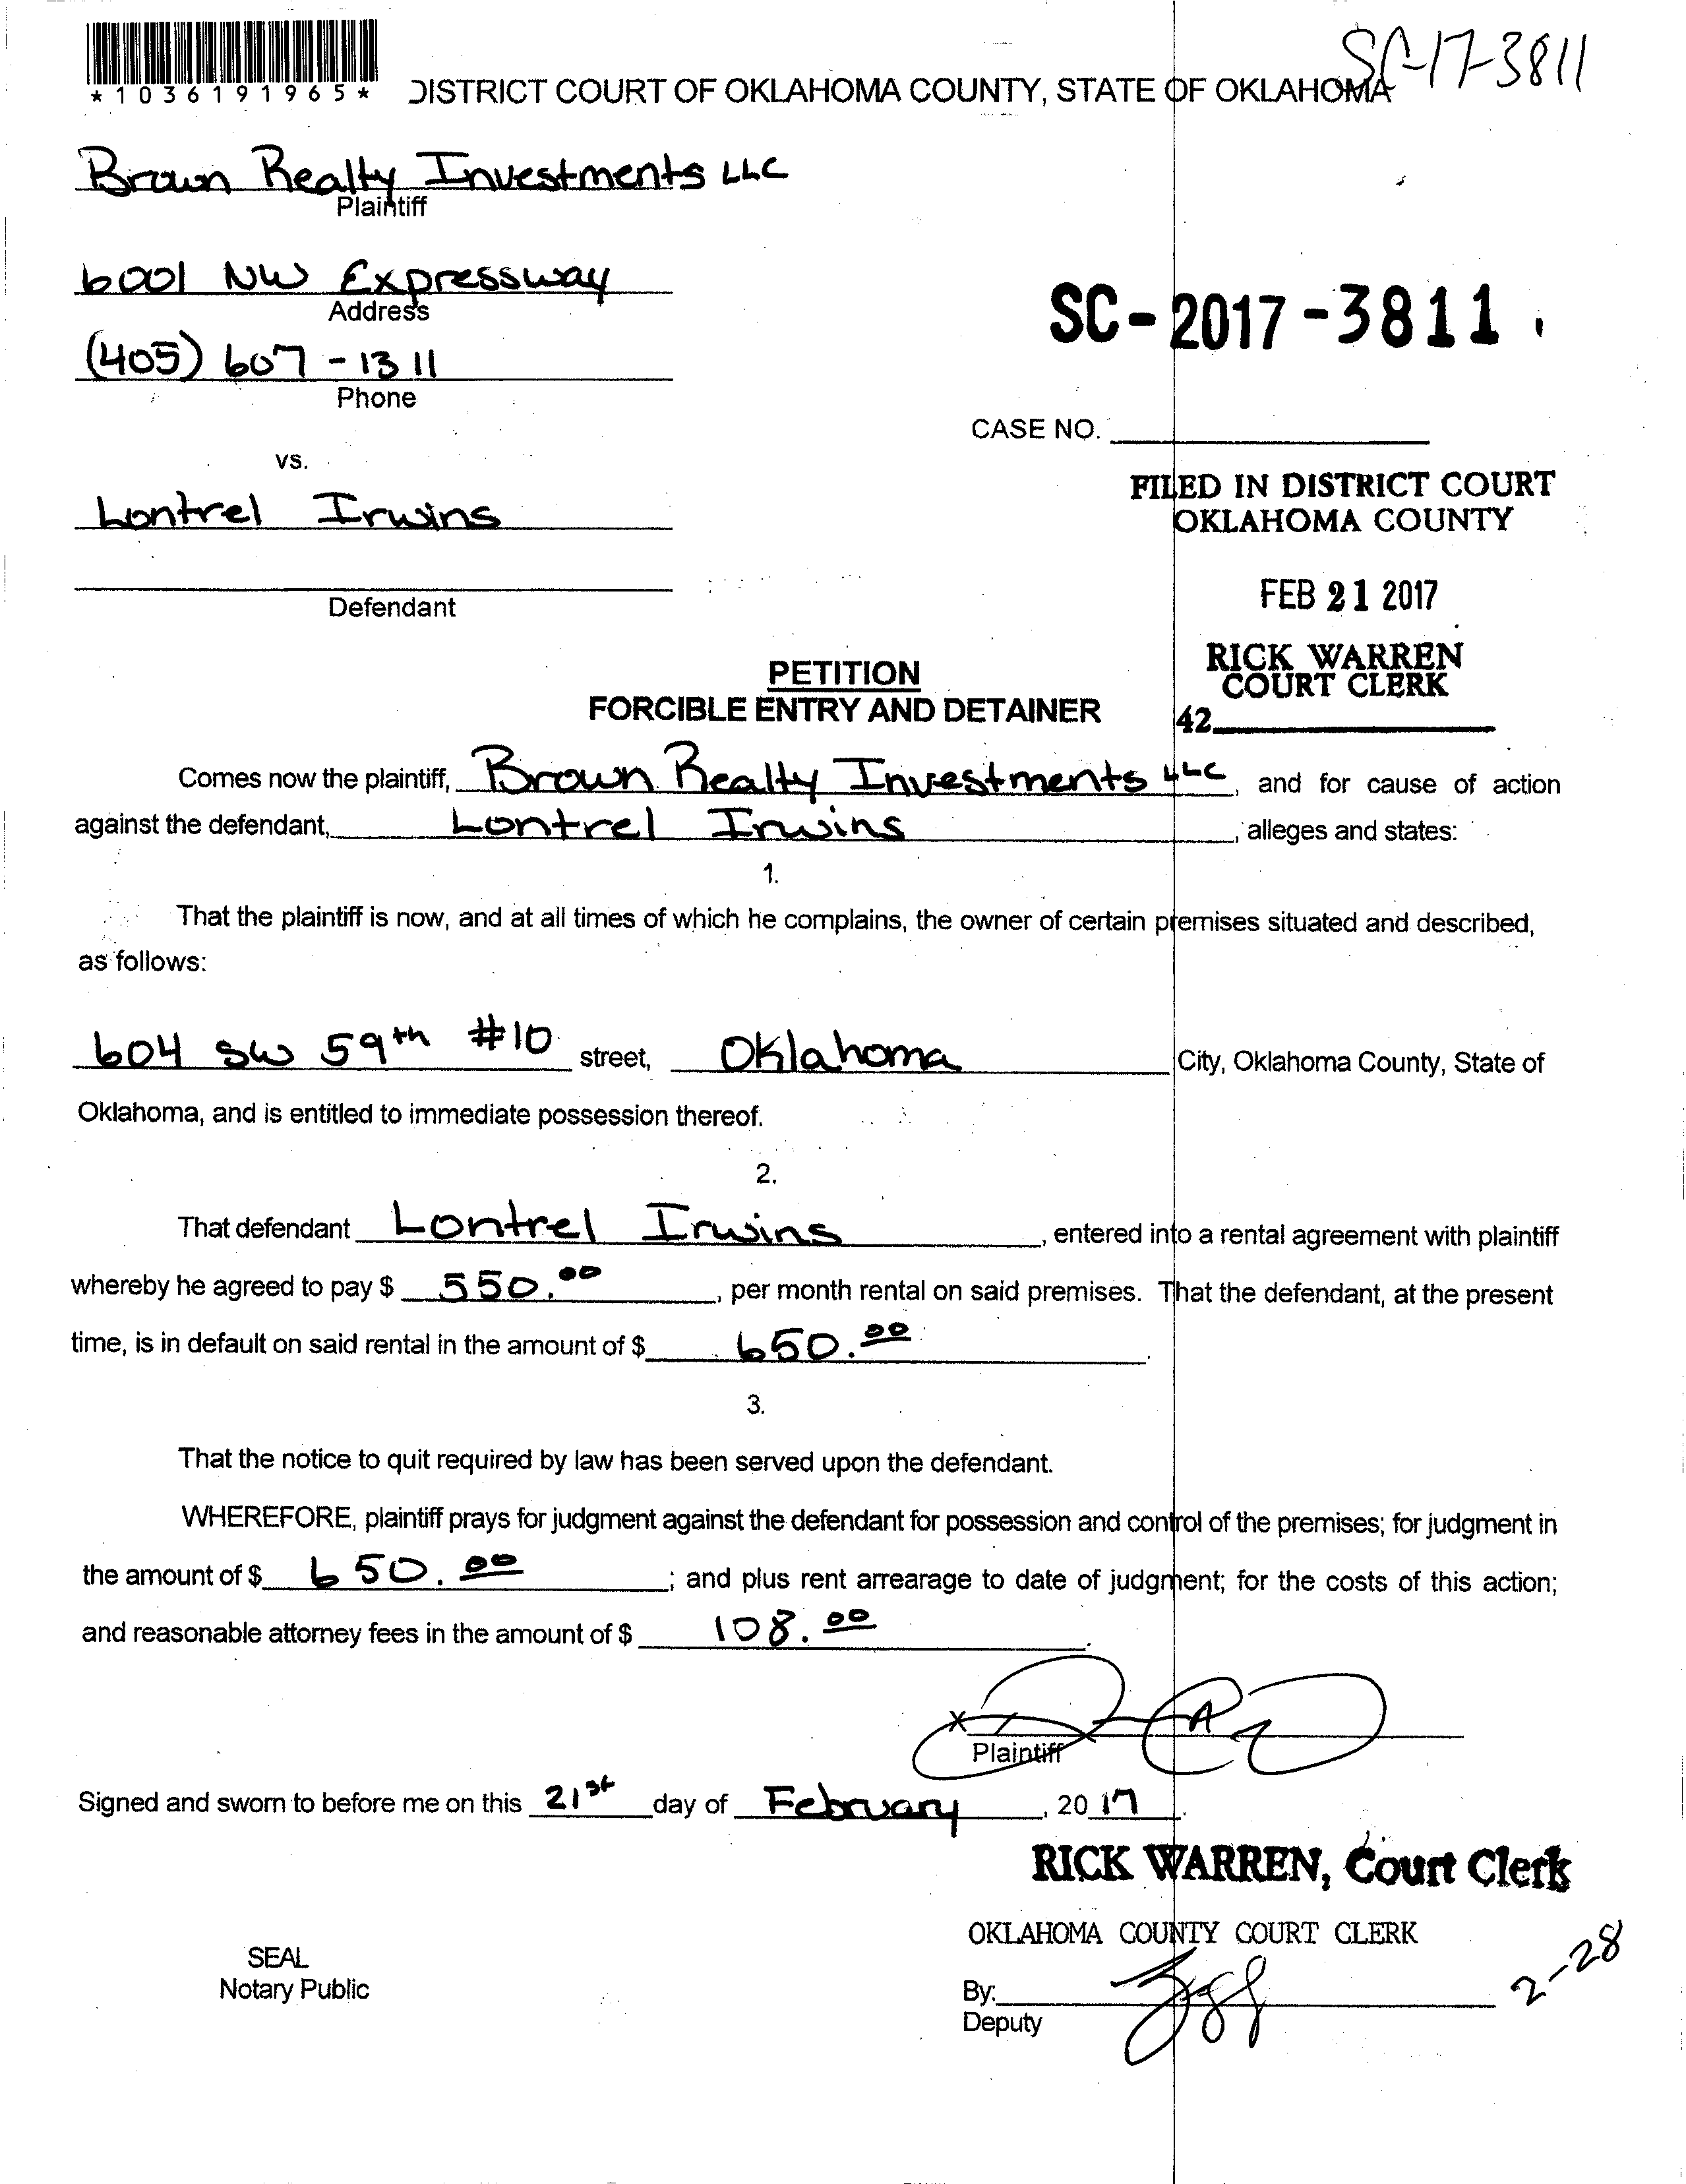 SC-17-3811
*1036191965*
DISTRICT COURT OF OKLAHOMA COUNTY, STATE OF OKLAHOMA
Brown Realty Investments LLC
Plaintiff
6001 NW Expressway
Address
SC-2017-3811
(405) 607-1311
Phone
CASE NO.
vs.
FILED IN DISTRICT COURT
OKLAHOMA COUNTY
Lontrel Irwins
FEB 21 2017
Defendant
RICK WARREN
COURT CLERK
42
PETITION
FORCIBLE ENTRY AND DETAINER
Comes now the plaintiff, Brown Realty Investments LLC, and for cause of action
against the defendant, Lontrel Irwins, alleges and states:
1.
That the plaintiff is now, and at all times of which he complains, the owner of certain premises situated and described,
as follows:
604 SW 59th #10 street, Oklahoma City, Oklahoma County, State of
Oklahoma, and is entitled to immediate possession thereof.
2.
That defendant Lontrel Irwins, entered into a rental agreement with plaintiff
whereby he agreed to pay $ 550.00, per month rental on said premises. That the defendant, at the present
time, is in default on said rental in the amount of $ 650.00.
3.
That the notice to quit required by law has been served upon the defendant.
WHEREFORE, plaintiff prays for judgment against the defendant for possession and control of the premises; for judgment in
the amount of $ 650.00; and plus rent arrearage to date of judgment; for the costs of this action;
and reasonable attorney fees in the amount of $ 108.00.
X
Plaintiff
Signed and sworn to before me on this 21st day of February, 2017.
RICK WARREN, Court Clerk
OKLAHOMA COUNTY COURT CLERK
SEAL
Notary Public
By:
Deputy
2-28